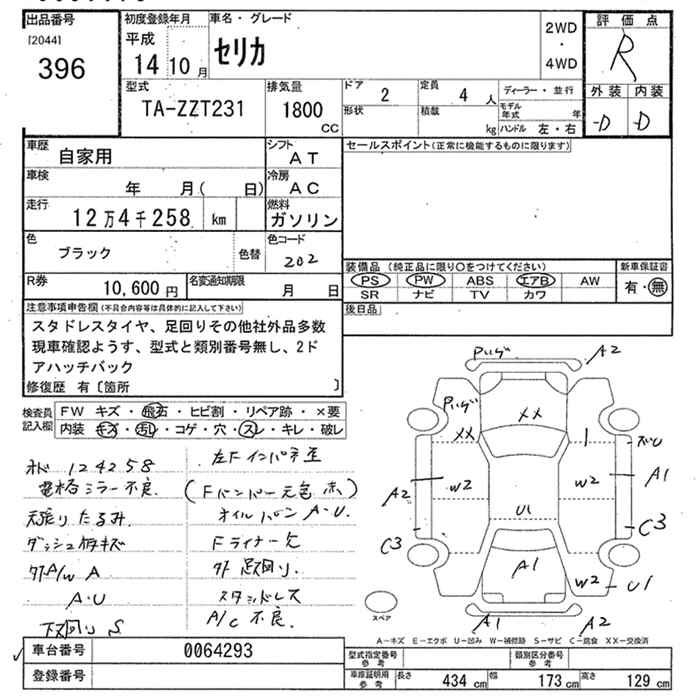 出品番号
[2044]
396
初度登録年月
平成
14 10 月
車名・グレード
セリカ
2WD
・
4WD
評価点
R
外装 内装
-D -D
型式
TA-ZZT231
排気量
1800
CC
ドア 2
定員 4 人
形状
積載 kg
ディーラー・並行
モデル年式 年
ハンドル 左・右
車歴
自家用
シフト
AT
車検
年 月( 日)
冷房
AC
走行
12万4千258 km
燃料
ガソリン
色
ブラック
色替
色コード
202
R券
10,600 円
名変通知期限
月 日
セールスポイント(正常に機能するものに限ります)
装備品 (純正品に限り○をつけてください)
新車保証書
PS PW ABS エアB AW
有・無
SR ナビ TV カワ
後日品
注意事項申告欄(不具合内容等は具体的に記入して下さい)
スタドレスタイヤ、足回りその他社外品多数
現車確認ようす、型式と類別番号無し、2ド
アハッチバック
修復歴 有〔箇所 〕
検査員記入欄
FW キズ・飛石・ヒビ割・リペア跡・×要
内装 キズ・汚レ・コゲ・穴・スレ・キレ・破レ
メド 124258
電格ミラー不良
天張りたるみ
ダッシュ廻キズ
外A/W A
A・U
下回り S
左Fインパネ歪
(Fバンパー元色 赤)
オイルパン A・U.
Fライナー欠
外 足回り.
スタッドレス
A/C 不良.
A2
XX
XX
ズU
W2
W2
A2
A1
U1
C3
C3
A1
W2
U1
A1
A2
スペア
A-キズ E-エクボ U-凹み W-補修跡 S-サビ C-腐食 XX-交換済
車台番号
0064293
登録番号
型式指定番号 参考
類別区分番号 参考
車庫証明用 参考
長さ 434 cm
幅 173 cm
高さ 129 cm